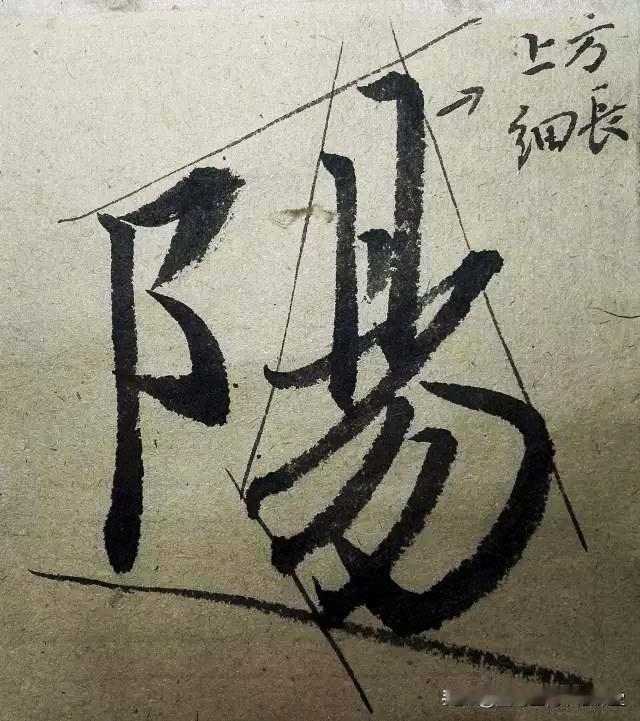 陽
上方
細長